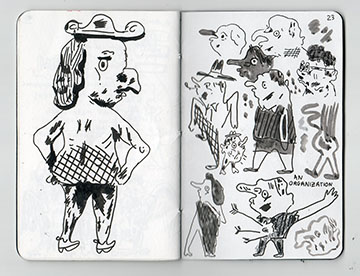 23
AN
ORGANIZATION